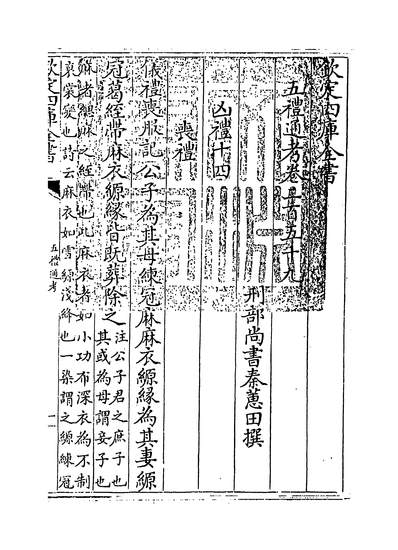 欽定四庫全書
五禮通考卷二百五十九
刑部尚書秦蕙田撰
凶禮十四
喪禮
儀禮喪服記公子為其母練冠麻麻衣縓緣為其妻縓
冠葛絰帶麻衣縓緣皆既葬除之
注公子君之庶子也
其或為母謂妾子也
麻者緦麻之絰帶也此麻衣者如小功布深衣為不制
衰裳變也詩云麻衣如雪縓淺絳也一染謂之縓練冠
欽定四庫全書
五禮通考
一